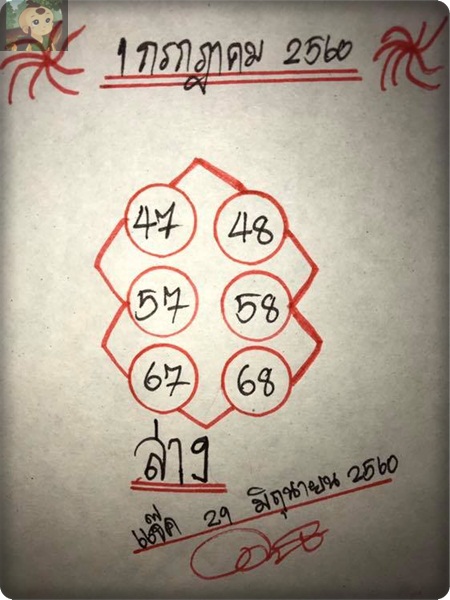 1 กรกฎาคม 2560
47 48
57 58
67 68
ล่าง
แจ๊ค 29 มิถุนายน 2560